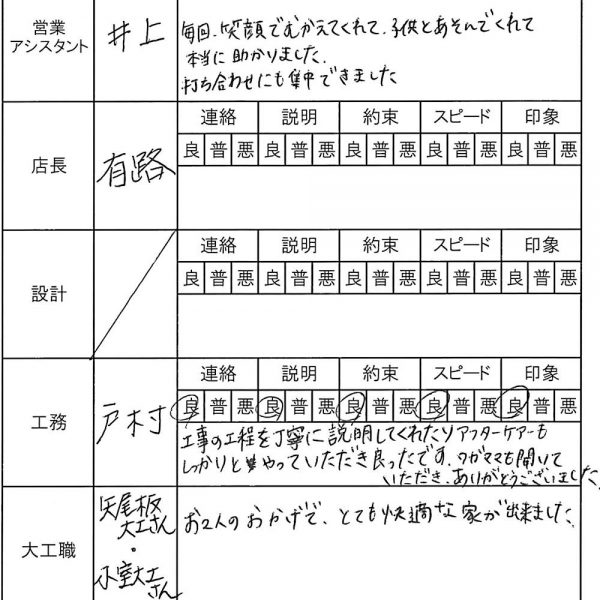 営業
アシスタント
井上
毎回、笑顔でむかえてくれて、子供とあそんでくれて
本当に助かりました。
打ち合わせにも集中できました
店長
有路
連絡 説明 約束 スピード 印象
良 普 悪 良 普 悪 良 普 悪 良 普 悪 良 普 悪
設計
連絡 説明 約束 スピード 印象
良 普 悪 良 普 悪 良 普 悪 良 普 悪 良 普 悪
工務
戸村
連絡 説明 約束 スピード 印象
良 普 悪 良 普 悪 良 普 悪 良 普 悪 良 普 悪
工事の工程を丁寧に説明してくれたりアフターケアーも
しっかりとやっていただき良ったです。ワガママも聞いて
いただき、ありがとうございました。
大工職
矢尾板
大工さん
・
小室大工さん
お2人のおかげで、とても快適な家が出来ました。